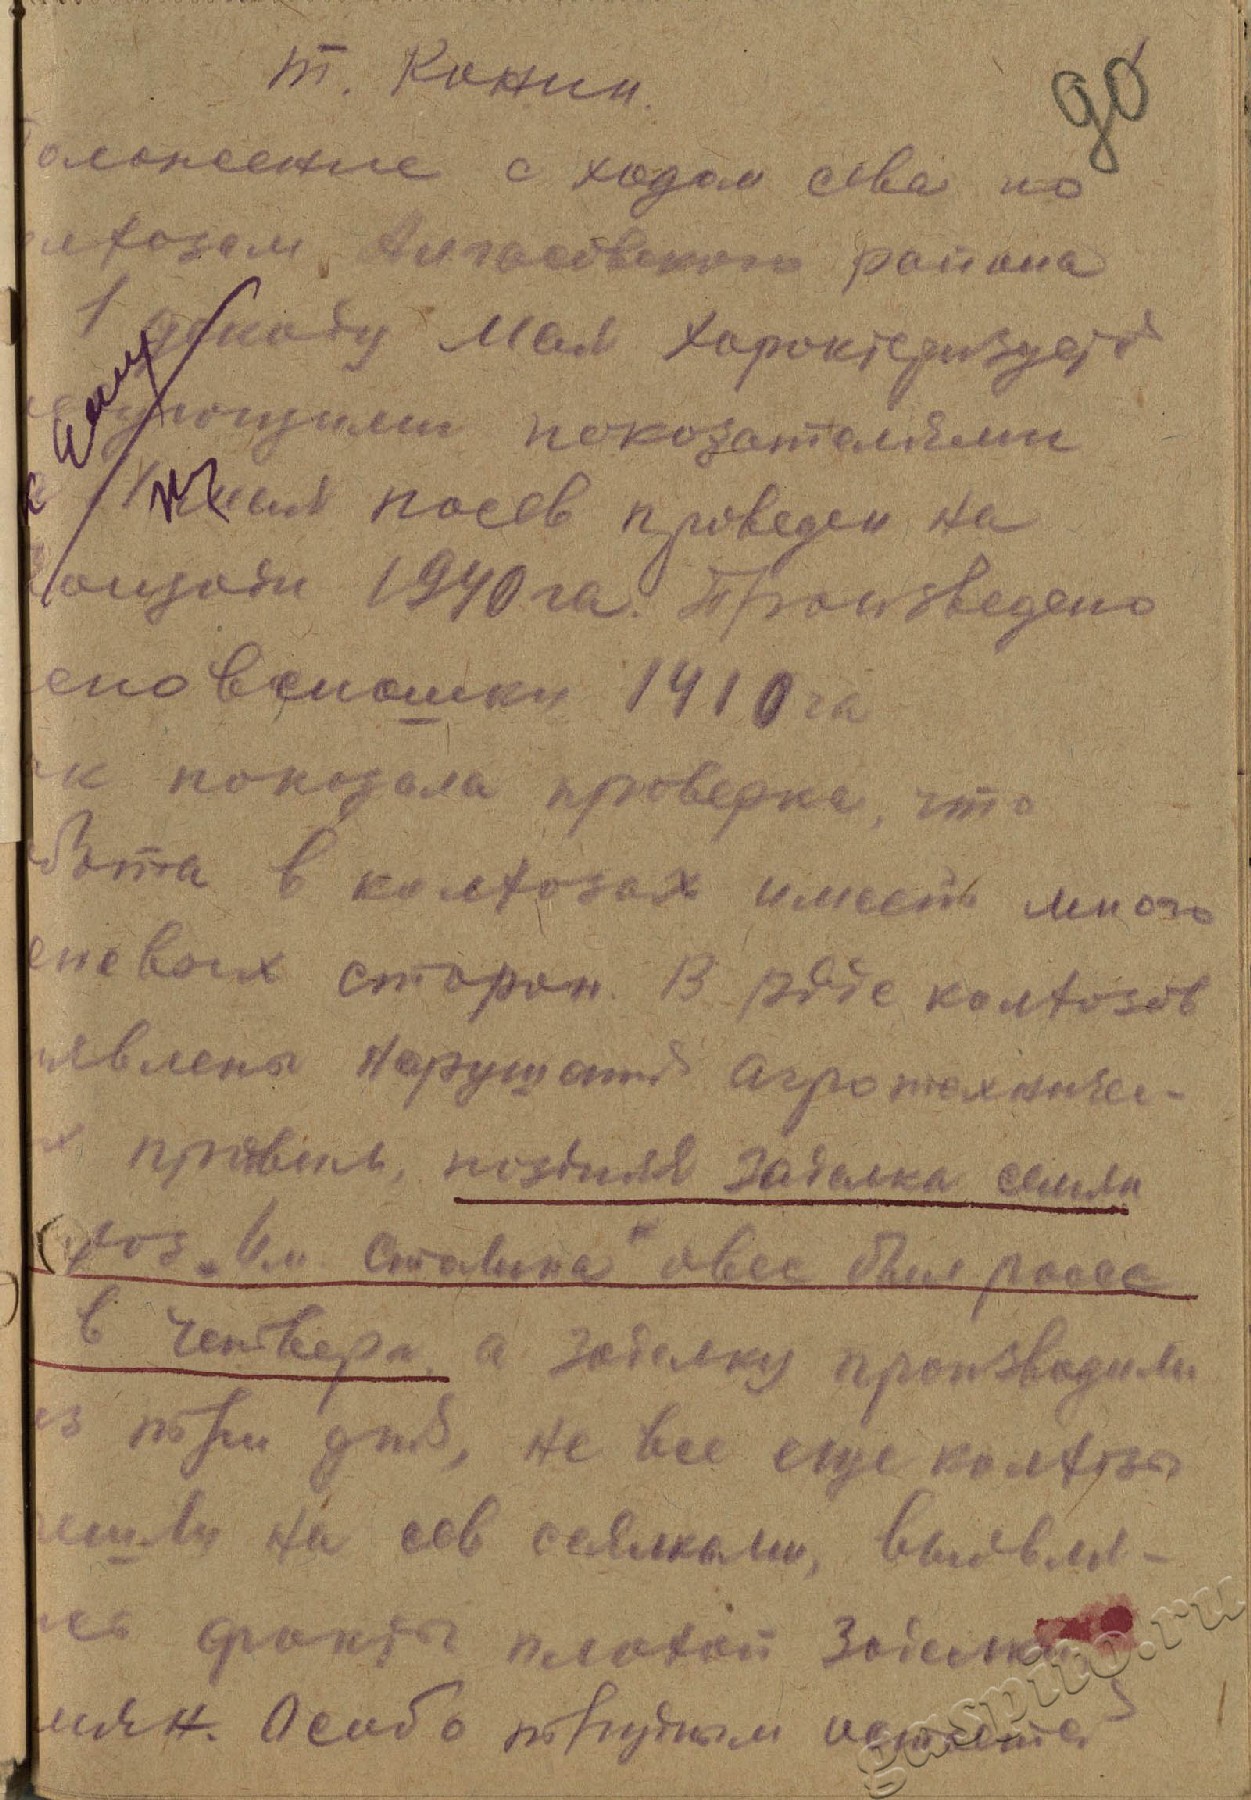 90
т. Канин.
Положение с ходом сева по
олхозам Алгасовского района
1 декаду мая характеризуется
ледующими показателями
1 мая посев проведен на
лощади 1940 га. Произведено
еповспашки 1410 га
ак показала проверка, что
абота в колхозах имеет много
еневых сторон. В ряде колхозов
ыявлены нарушения агротехничес-
х правил, поздняя заделка семян
хоз „Им Сталина" овес был рассе
в четверг, а заделку производили
ез три дня, не все еще колхозы
решли на сев сеялками, выявля-
ись факты плохой заделки
емян. Особо трудным остается
gaspito.ru